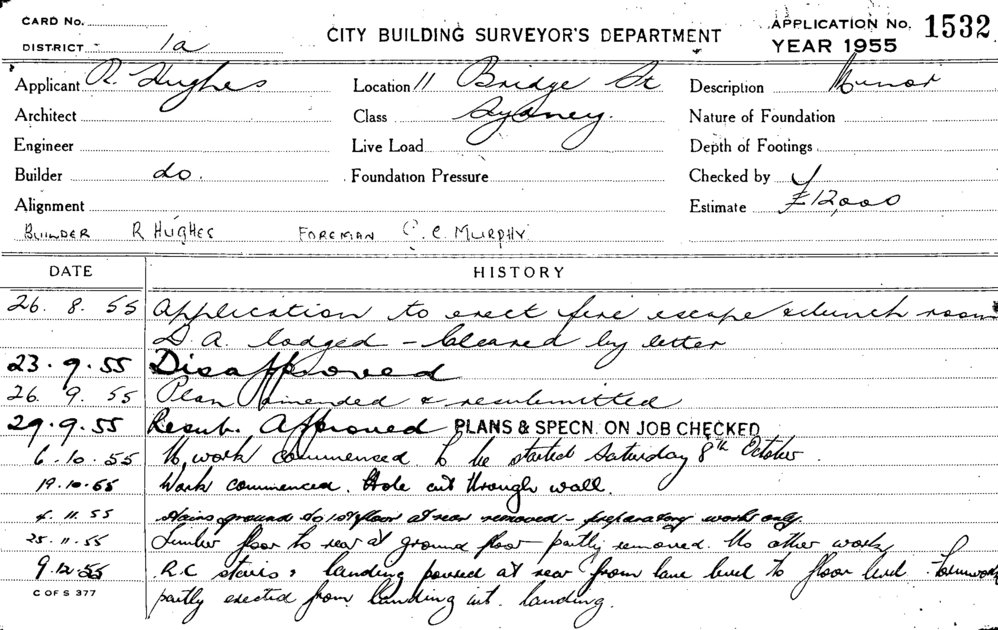 CARD No.
DISTRICT - 1a
CITY BUILDING SURVEYOR'S DEPARTMENT
APPLICATION No. 1532
YEAR 1955
Applicant R. Hughes
Location 11 Bridge St
Description Minor
Architect
Class Sydney.
Nature of Foundation
Engineer
Live Load
Depth of Footings
Builder do.
Foundation Pressure
Checked by
Alignment
Estimate £12,000
BUILDER R HUGHES FOREMAN C. C. MURPHY.
DATE HISTORY
26. 8. 55 Application to erect fire escape & lunch room
D.A. lodged - Cleared by letter
23. 9. 55 Disapproved
26. 9. 55 Plan amended & resubmitted
29. 9. 55 Resub. Approved PLANS & SPECN. ON JOB CHECKED
6. 10. 55 No work commenced. To be started Saturday 8th October.
19. 10. 55 Work commenced. Hole cut through wall.
4. 11. 55 Stairs ground to 1st floor at rear removed - preparatory work only.
25. 11. 55 Timber floor to rear at ground floor - partly removed. No other work
9. 12. 55 R.C stairs & landing poured at rear from lane level to floor level. Formwork
partly erected from landing int. landing.
C OF S 377